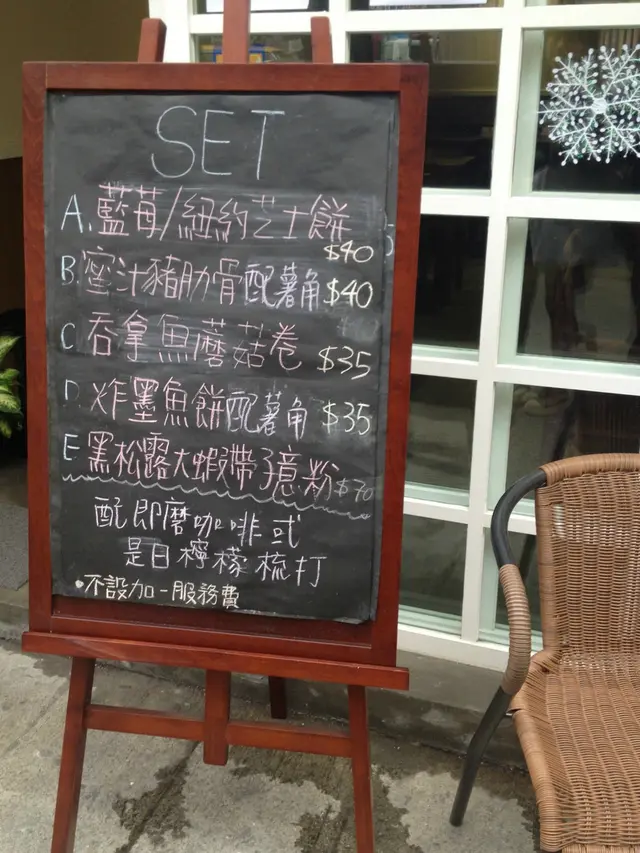 SET
A. 藍莓/紐約芝士餅
$40
B. 蜜汁豬肋骨配薯角 $40
C 吞拿魚/蘑菇卷 $35
D. 炸墨魚餅配薯角 $35
E. 黑松露大蝦帶子意粉 $70
配即磨咖啡或
是日檸檬梳打
•不設加一服務費